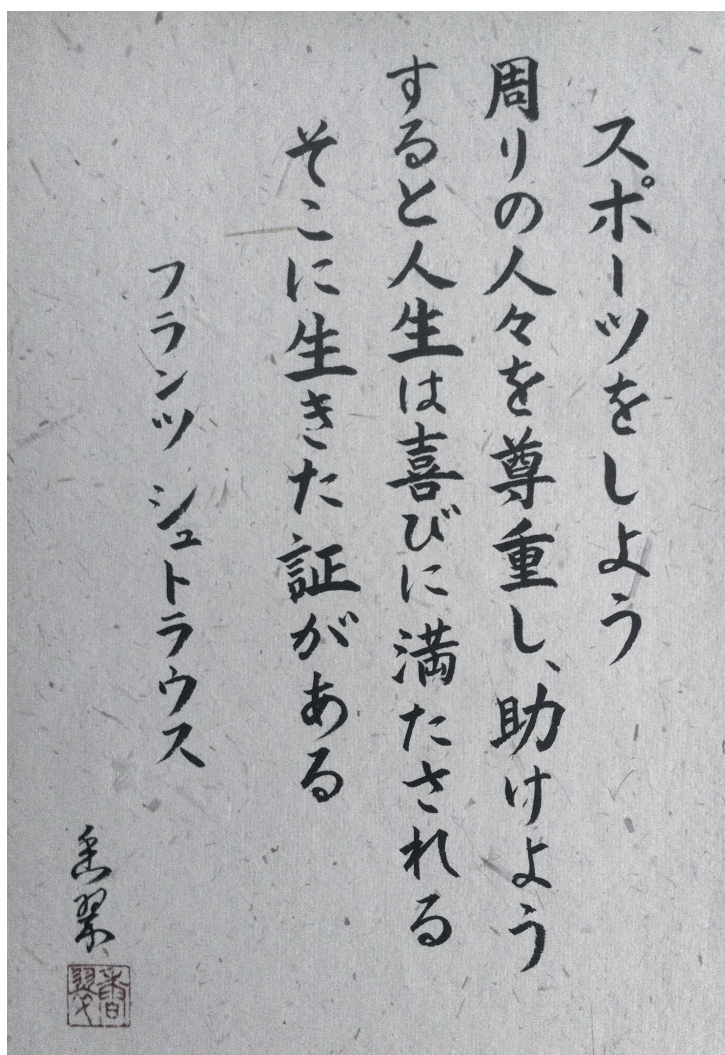 スポーツをしよう
周りの人々を尊重し、助けよう
すると人生は喜びに満たされる
そこに生きた証がある
フランツ シュトラウス
香翠
香翠